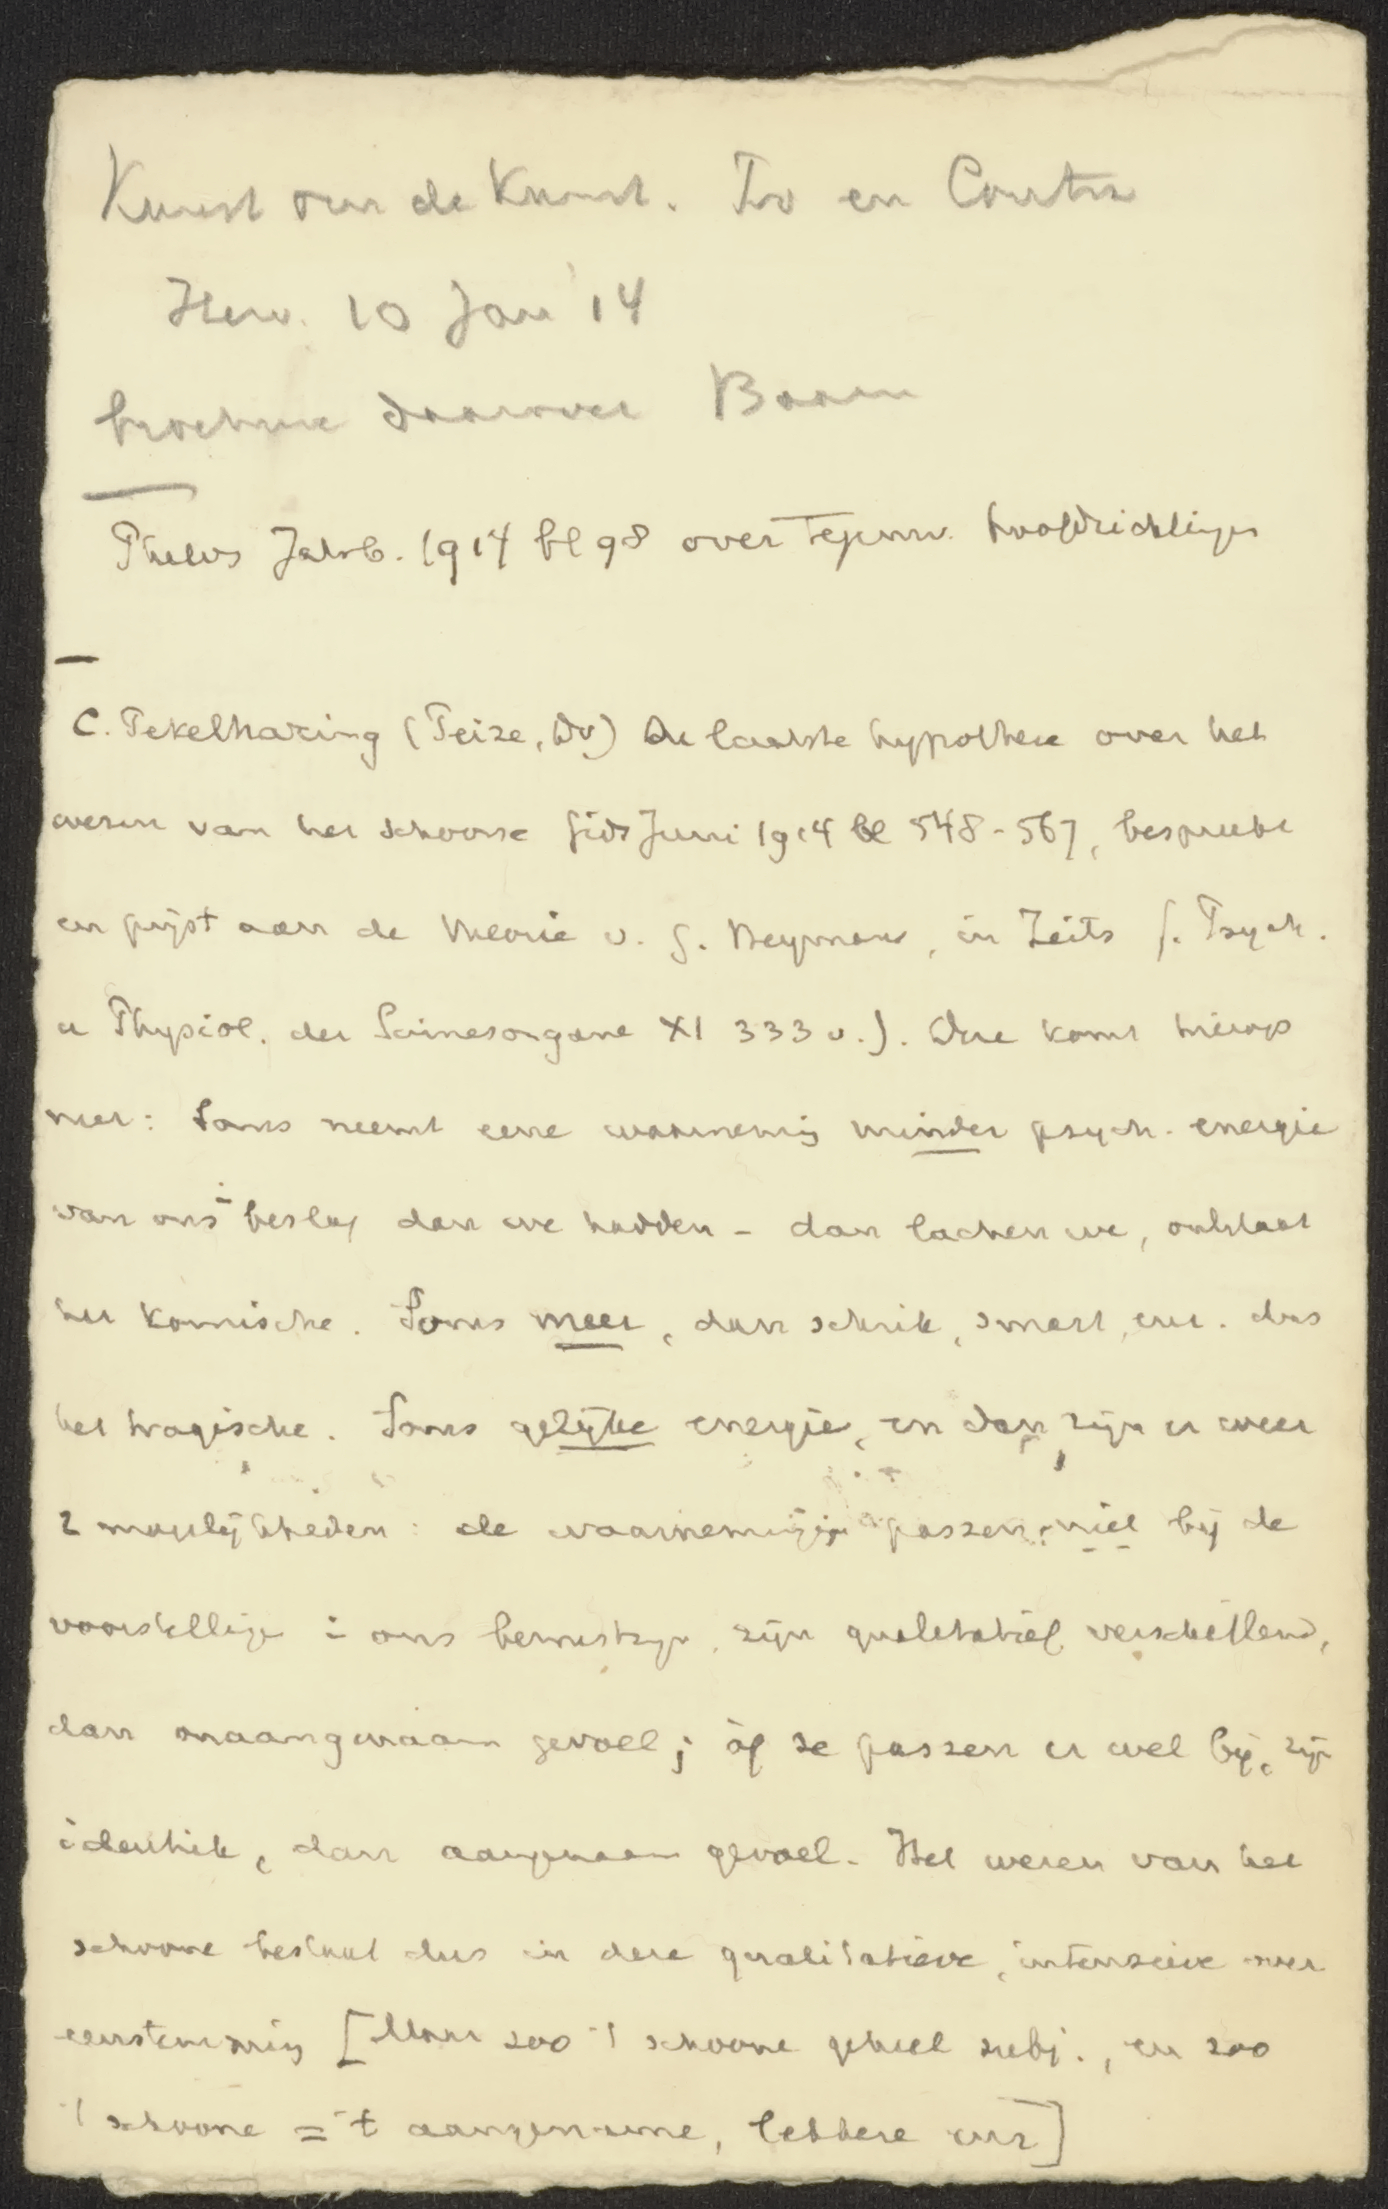 Kunst om de Kunst. Pro en Contra
Herv. 10 Jan '14
brochure daarover Baarn
Philos Jahrb. 1914 bl 98 over Tegenw. hoofdrichtingen
C. Pekelharing (Peize, Dr) De laatste hypothese over het
wezen van het schoone Gids Juni 1914 bl 548-567, bespreekt
en prijst aan de theorie v. G. Heymans, in Zeits f. Psych.
u Physiol. der Sinnesorgane XI 333 v.). Deze komt hierop
neer: Soms neemt eene waarneming minder psych. energie
van ons in beslag dan we hadden - dan lachen we, ontstaat
het komische. Soms meer, dan schrik, smart, enz. dus
het tragische. Soms gelijke energie, en dan zijn er weer
2 mogelijkheden: de waarnemingen passen niet bij de
voorstellingen in ons bewustzijn, zijn qualitatief verschillend,
dan onaangenaam gevoel; òf ze passen er wel bij, zijn
identiek, dan aangenaam gevoel. Het wezen van het
schoone bestaat dus in deze qualitatieve, intensieve over
eenstemming [Maar zoo 't schoone geheel subj., en zoo
't schoone = 't aangename, lekkere enz]